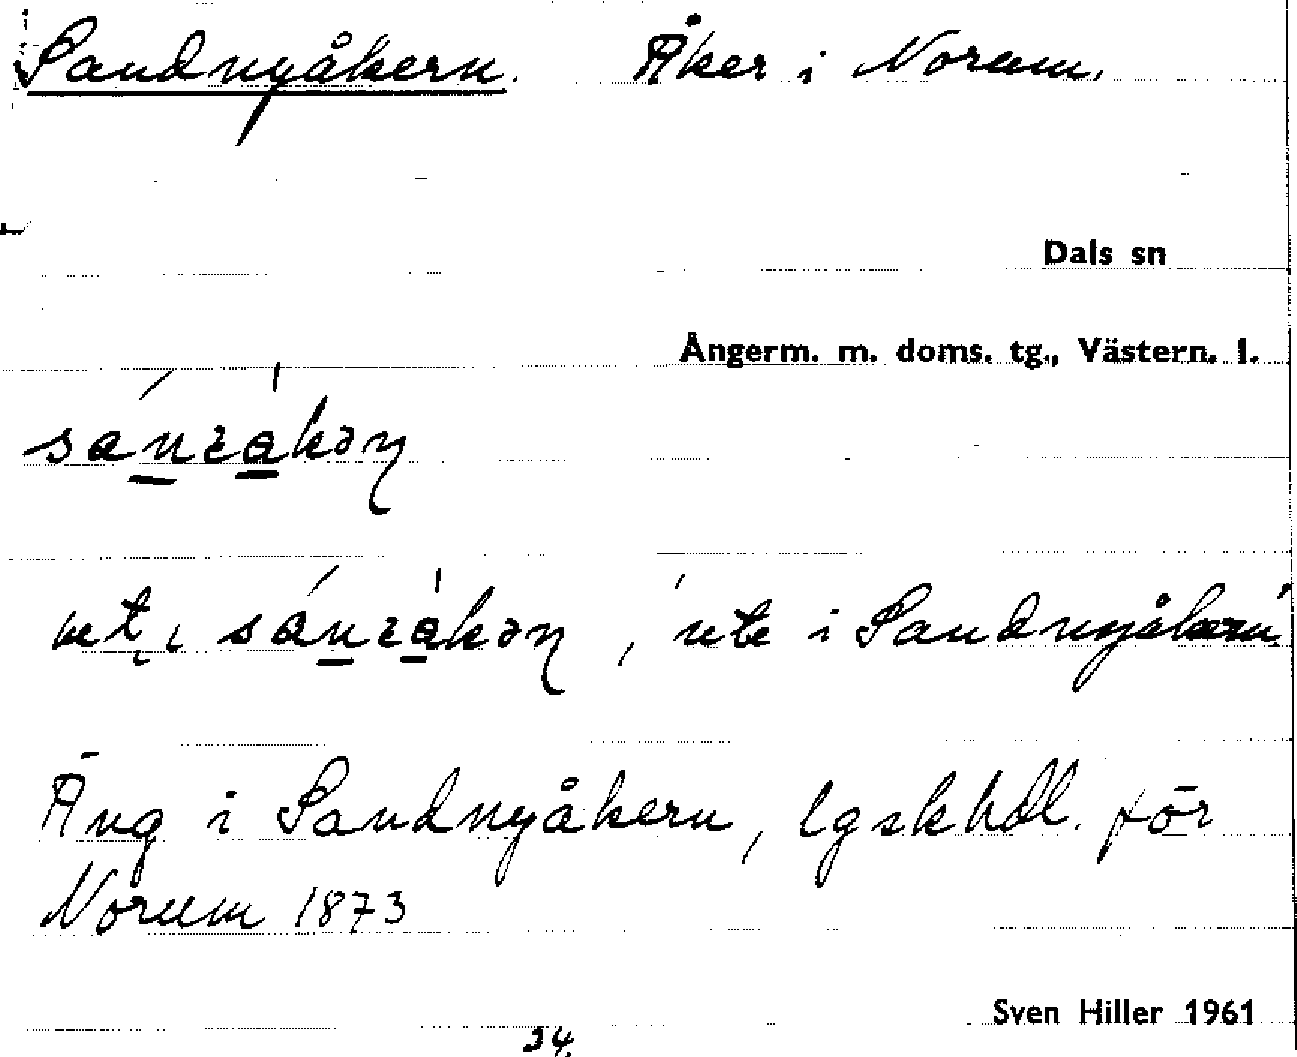 Sandnyåkern. Åker i Norum.
Dals sn
Ångerm. m. doms. tg., Västern. l.
ute i Sandnyåkern
Äng i Sandnyåkern, lgskhdl. för
Norum 1873
Sven Hiller 1961
34.